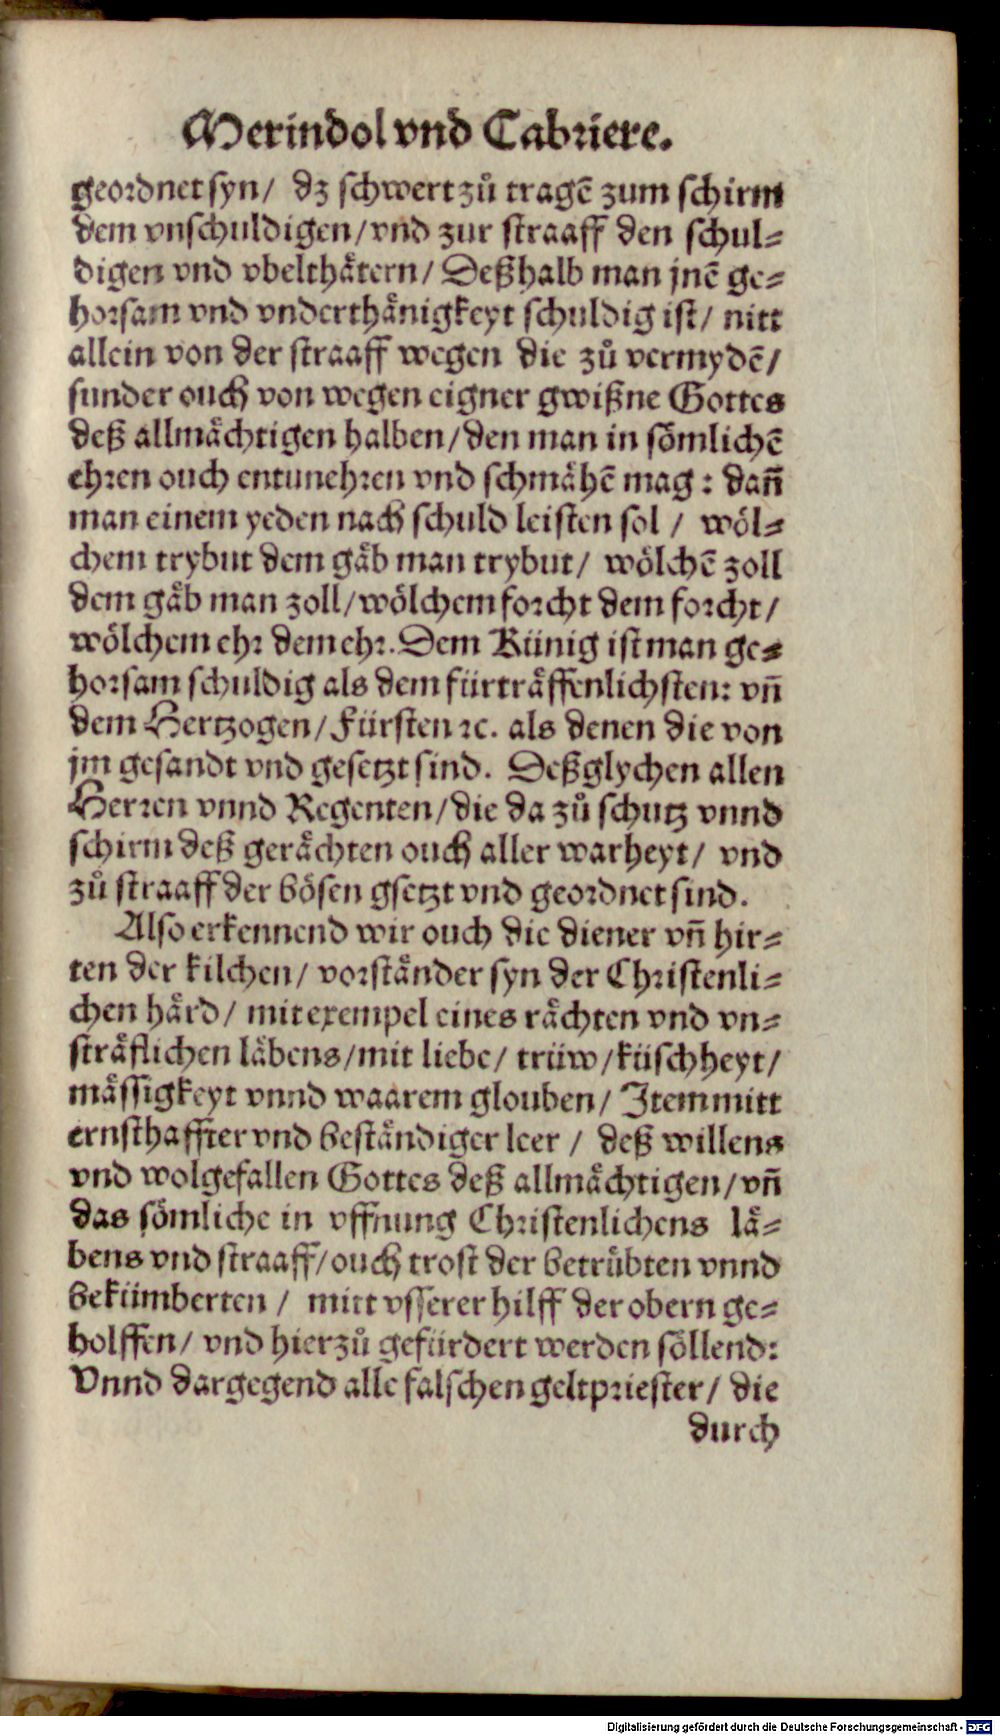 Merindol vnd Cabriere.
geordnet syn/ dz schwert zů tragē zum schirm
dem vnschuldigen/vnd zur straaff den schul⸗
digen vnd vbelthaͤtern/ Deßhalb man jnē ge⸗
horsam vnd vnderthaͤnigkeyt schuldig ist/ nitt
allein von der straaff wegen die zů vermydē/
sunder ouch von wegen eigner gwißne Gottes
deß allmaͤchtigen halben/den man in soͤmlichē
ehren ouch entunehren vnd schmaͤhē mag: dañ
man einem yeden nach schuld leisten sol / woͤl⸗
chem trybut dem gaͤb man trybut/ woͤlchē zoll
dem gaͤb man zoll/woͤlchem forcht dem forcht/
woͤlchem ehr dem ehr. Dem Künig ist man ge⸗
horsam schuldig als dem fürtraͤffenlichsten: vñ
dem Hertzogen/Fürsten ꝛc. als denen die von
jm gesandt vnd gesetzt sind. Deßglychen allen
Herren vnnd Regenten/die da zů schutz vnnd
schirm deß geraͤchten ouch aller warheyt/ vnd
zů straaff der boͤsen gsetzt vnd geordnet sind.
Also erkennend wir ouch die diener vñ hir⸗
ten der kilchen/ vorstaͤnder syn der Christenli⸗
chen haͤrd/ mit exempel eines raͤchten vnd vn⸗
straͤflichen laͤbens/mit liebe/ trüw/küschheyt/
maͤssigkeyt vnnd waarem glouben/ Item mitt
ernsthaffter vnd bestaͤndiger leer / deß willens
vnd wolgefallen Gottes deß allmaͤchtigen/vñ
das soͤmliche in vffnung Christenlichens laͤ⸗
bens vnd straaff/ouch trost der betruͤbten vnnd
bekümberten / mitt vsserer hilff der obern ge⸗
holffen/ vnd hierzů gefürdert werden soͤllend:
Vnnd dargegend alle falschen geltpriester/ die
durch
Digitalisierung gefördert durch die Deutsche Forschungsgemeinschaft - DFG